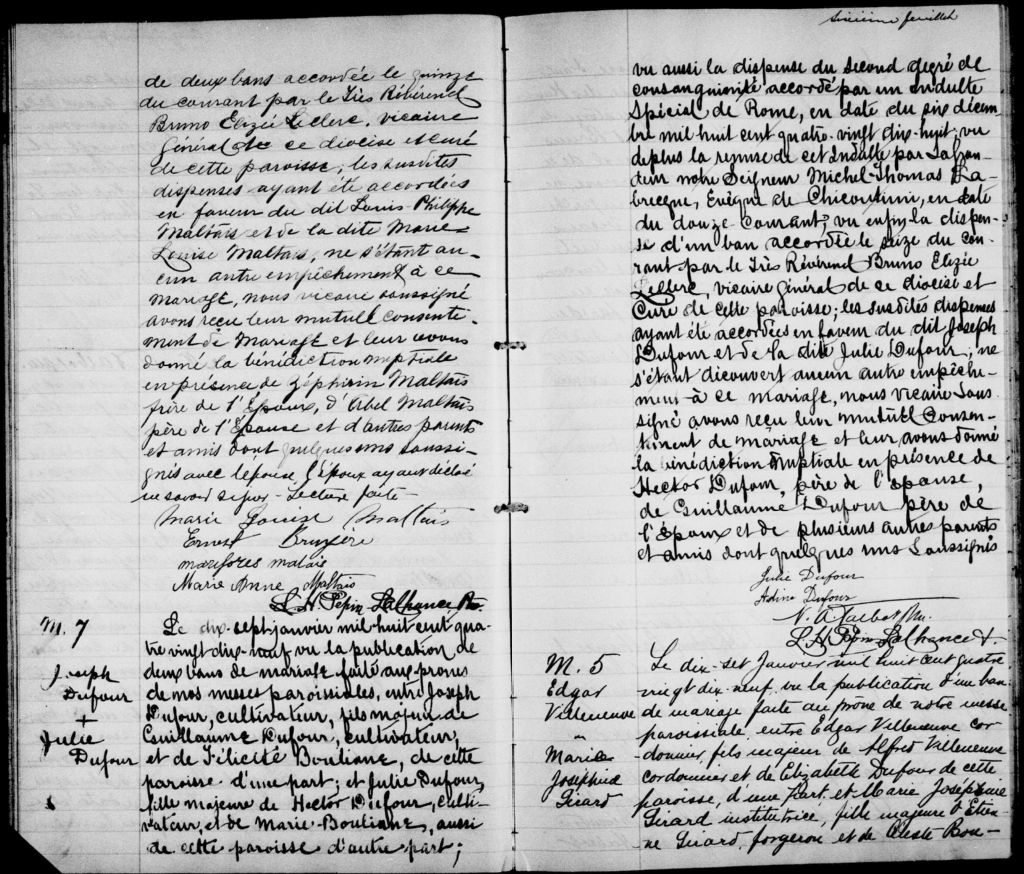 de deux bans accordée le quinze
du courant par le Très Révérend
Bruno Elzée Leclerc, vicaire
Général de ce diocèse et curé
de cette paroisse; les susdites
dispenses ayant été accordées
en faveur du dit Louis-Philippe
Maltais et de la dite Marie
Louise Maltais, ne s'étant au-
cun autre empêchement à ce
mariage, nous vicaire soussigné
avons reçu leur mutuel consente-
ment de mariage et leur avons
donné la bénédiction nuptiale
en présence de Zéphirin Maltais
frère de l'Epoux, d'Abel Maltais
père de l'Epouse et d'autres parents
et amis dont quelques uns soussi-
gnés avec l'épouse, l'époux ayant déclaré
ne savoir signer. Lecture faite.
Marie Louise Maltais
Ernest Bruyère
Marie Anne Maltais
L. H. Pépin Lachance, Ptr.
M. 7
Joseph
Dufour
+
Julie
Dufour
Le dix-sept janvier mil-huit cent qua-
tre vingt dix-neuf vu la publication de
deux bans de mariage faite aux prones
de nos messes paroissiales, entre Joseph
Dufour, cultivateur, fils majeur de
Guillaume Dufour, cultivateur,
et de Félicité Boulianz, de cette
paroisse d'une part; et Julie Dufour,
fille majeure de Hector Dufour, culti-
vateur, et de Marie Boulianz, aussi
de cette paroisse d'autre part;
Sixième feuillet
vu aussi la dispense du second degré de
consanguinité accordé par un Indulte
Spécial de Rome, en date du six décem-
bre mil huit cent quatre-vingt dix-huit; vu
de plus la remise de cet Indulte par Sa Gran-
deur notre Seigneur Michel-Thomas La-
brecque, Evêque de Chicoutimi, en date
du douze courant; vu enfin la dispen-
se d'un ban accordée le seize du cou-
rant par le Très Révérend Bruno Elzée
Leclerc, vicaire général de ce diocèse et
Curé de cette paroisse; les susdites dispenses
ayant été accordées en faveur du dit Joseph
Dufour et de la dite Julie Dufour; ne
s'étant découvert aucun autre empêche-
ment à ce mariage, nous vicaire sous-
signé avons reçu leur mutuel consen-
tement de mariage et leur avons donné
la bénédiction nuptiale en présence de
Hector Dufour, père de l'épouse,
de Guillaume Dufour père de
l'époux et de plusieurs autres parents
et amis dont quelques uns soussignés
Julie Dufour
Adina Dufour
N. A. Talbot
L. H. Pépin Lachance
M. 5
Edgar
Villeneuve
"
Marie
Joséphine
Girard
Le dix-set Janvier mil huit cent quatre
vingt dix-neuf, vu la publication d'un ban
de mariage faite au prone de notre messe
paroissiale, entre Edgar Villeneuve cor-
donnier, fils majeur de Alfred Villeneuve
cordonnier et de Elizabeth Dufour de cette
paroisse, d'une part, et Marie Joséphine
Girard institutrice, fille majeure d'Etien-
ne Girard, forgeron et de Céleste Bou-